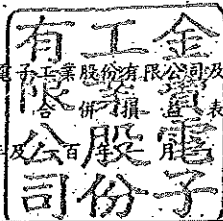 金寶電子
工業股份
有限公司
電子工業股份有限公司及
合併損益表
年及 百 年 月